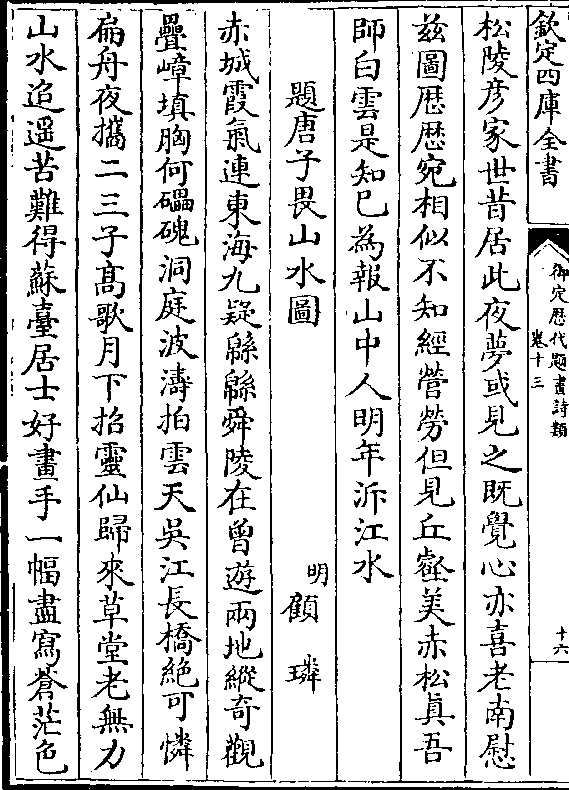 欽定四庫全書
御定歴代題畫詩類
卷十三
十六
松陵彦家世昔居此夜夢或見之既覺心亦喜老南慰
兹圖歴歴宛相似不知經營勞但見丘壑美赤松真吾
師白雲是知已為報山中人明年泝江水
題唐子畏山水圖
明顧璘
赤城霞氣連東海九疑緜緜舜陵在曾遊兩地縱奇觀
疊嶂填胸何礧磈洞庭波濤拍雲天吳江長橋絶可憐
扁舟夜攜二三子髙歌月下招靈仙歸來草堂老無力
山水追遥苦難得蘇臺居士好畫手一幅盡寫蒼茫色